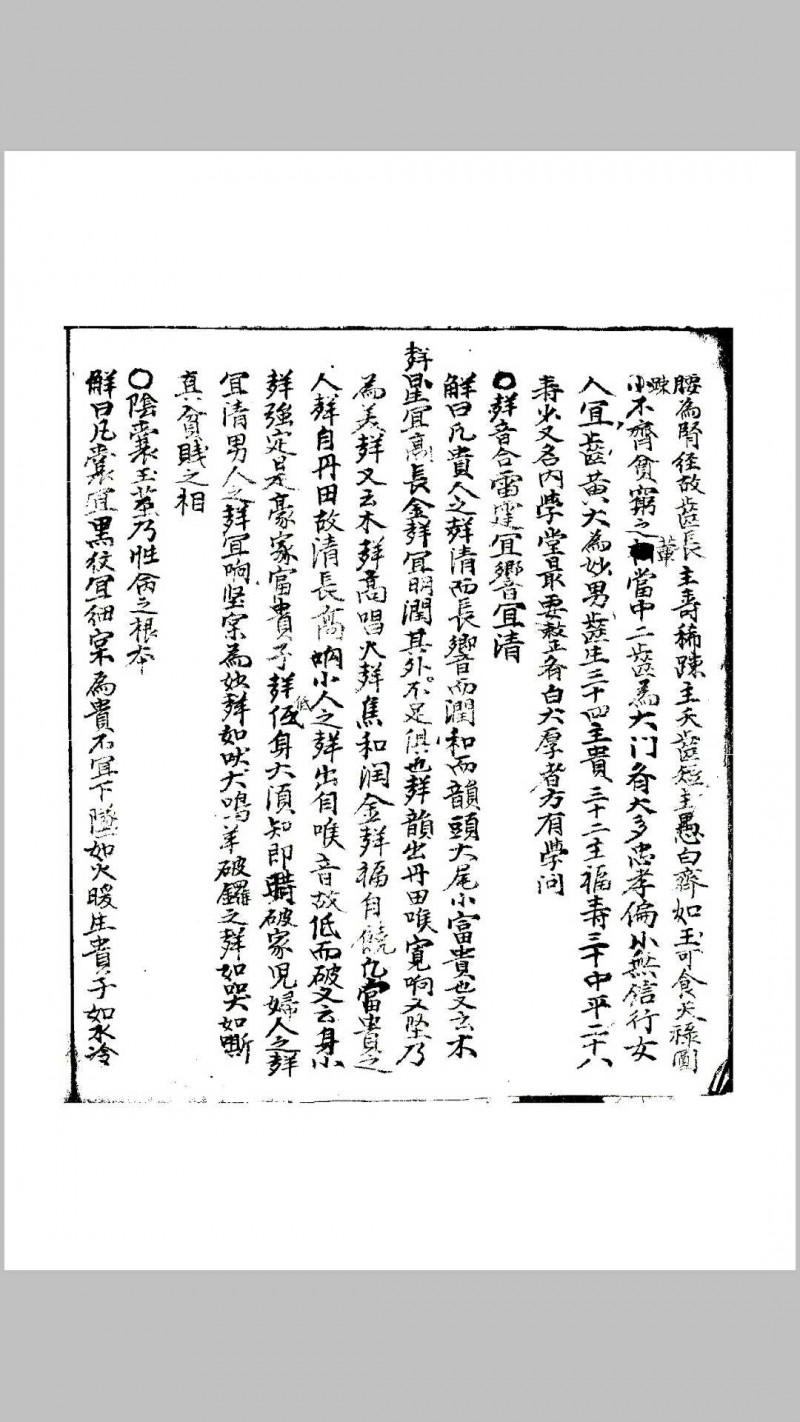 腰為腎径故齒長主壽稀踈主夭齒短主愚白齊如玉可食天祿圓
踈小不齊貧窮之輩當中二齒為大门齐大多忠孝偏小無信行女
人宜齒黄大為妙男齒生三十四主貴三十二主福壽三十中平二十八
寿少又名内學堂最要整齐白大厚者方有學问
〇聲音合雷霆宜響宜清
解曰凡貴人之聲清而長響而潤和而韻頭大尾小富貴也又云木
聲星宜高長金聲宜明潤其外不足俱也聲韻出丹田喉寛响又坚乃
為美聲又云木聲高唱火聲焦和润金聲福自饒凢富貴之
人聲自丹田故清長高响小人之聲出自喉音故低而破又云身小
聲強定是豪家富貴子聲低身大須知即時破家児婦人之聲
宜清男人之聲宜响坚宲為妙聲如吠犬鳴羊破鑼之聲如哭如嘶
真貧賤之相
〇陰囊玉莖乃性命之根本
解曰凡囊宜黒紋宜细宲為貴不宜下墜如火暖生貴子如水冷